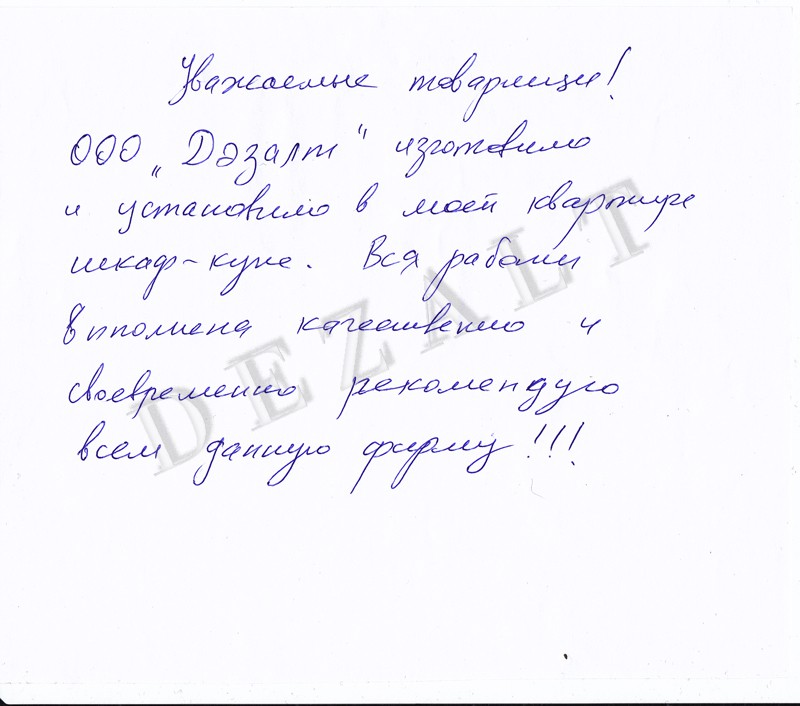 Уважаемые товарищи!
ООО „Дэзалт" изготовило
и установило в моей квартире
шкаф-купе. Вся работа
выполнена качественно и
своевременно рекомендую
всем данную фирму!!!
DEZALT